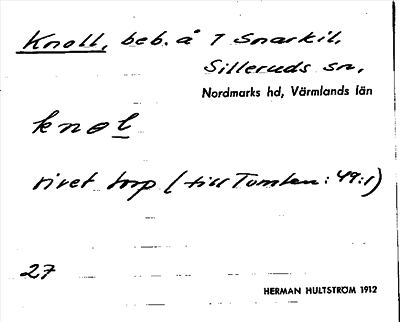 Knoll, beb. å 7 Snarkil,
Silleruds sn,
Nordmarks hd, Värmlands län
knol
rivet torp (till Tomten: 49:1)
27
HERMAN HULTSTRÖM 1912